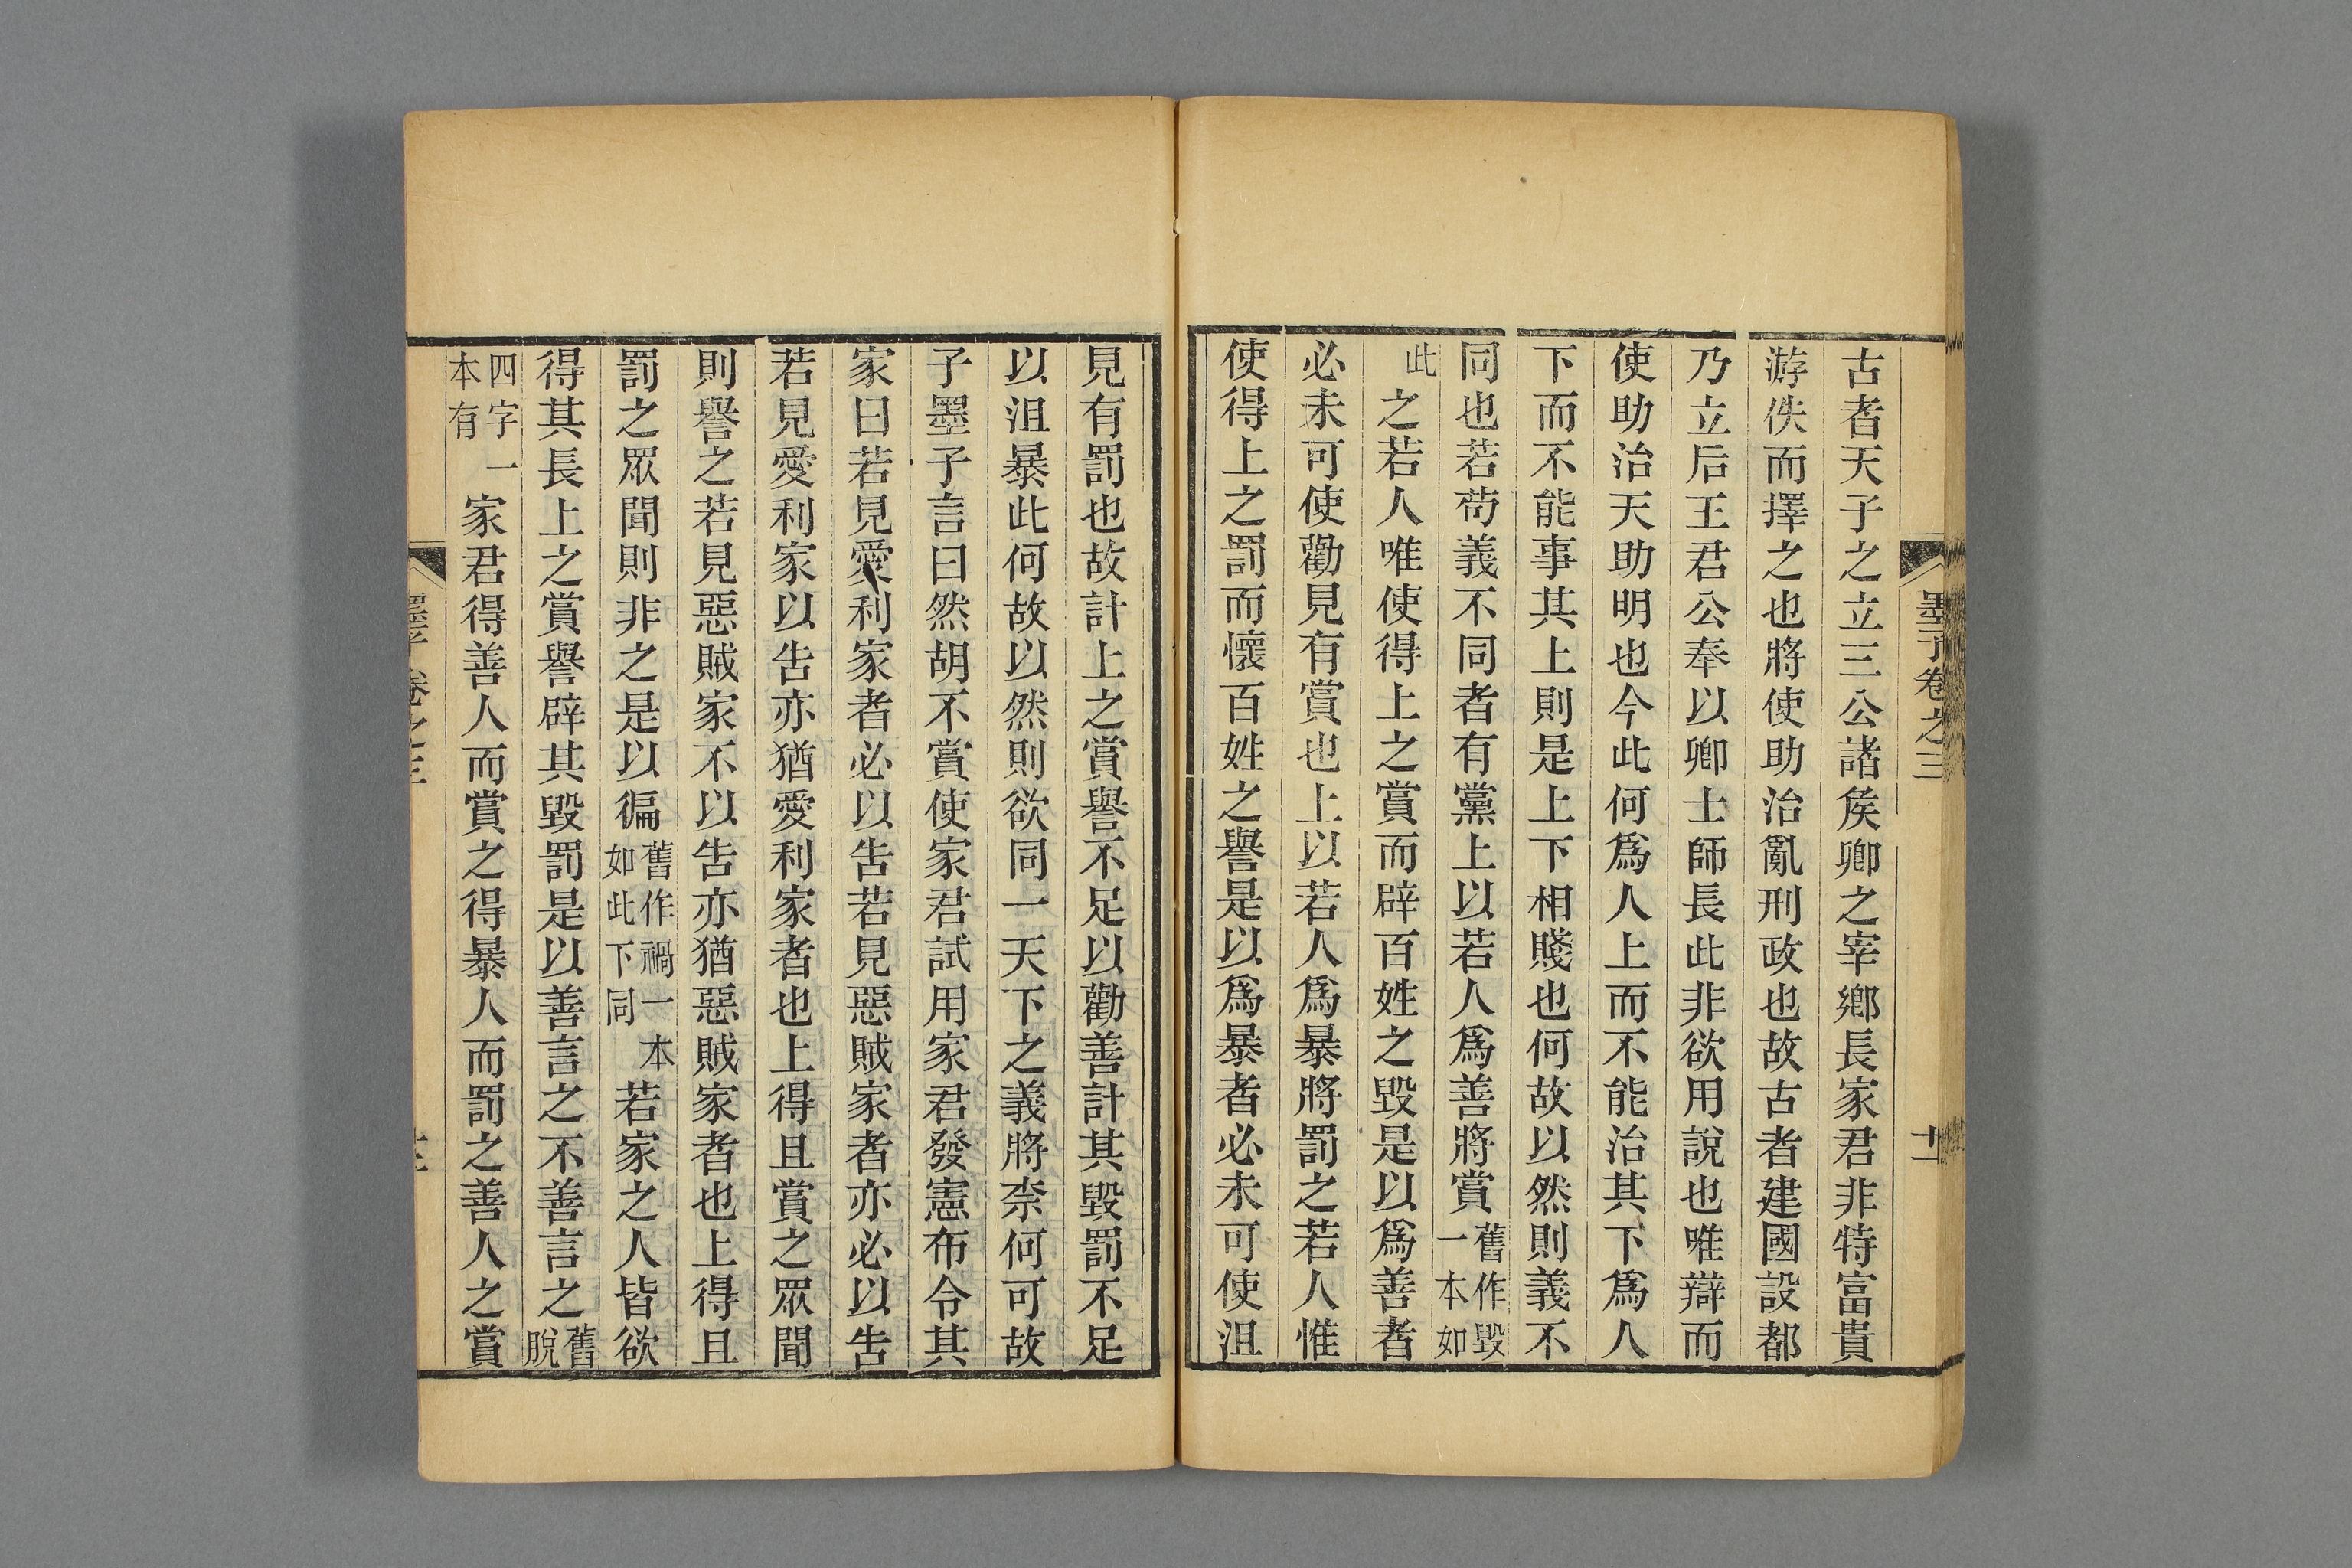 墨子卷之三
十一
古者天子之立三公諸矦卿之宰鄕長家君非特富貴
游佚而擇之也將使助治亂刑政也故古者建國設都
乃立后王君公奉以卿士師長此非欲用說也唯辯而
使助治天助明也今此何爲人上而不能治其下爲人
下而不能事其上則是上下相賤也何故以然則義不
同也若苟義不同者有黨上以若人爲善將賞舊作毀一本如
此之若人唯使得上之賞而辟百姓之毀是以爲善者
必未可使勸見有賞也上以若人爲暴將罰之若人惟
使得上之罰而懷百姓之譽是以爲暴者必未可使沮
見有罰也故計上之賞譽不足以勸善計其毀罰不足
以沮暴此何故以然則欲同一天下之義將柰何可故
子墨子言曰然胡不賞使家君試用家君發憲布令其
家曰若見愛利家者必以告若見惡賊家者亦必以告
若見愛利家以告亦猶愛利家者也上得且賞之眾聞
則譽之若見惡賊家不以告亦猶惡賊家者也上得且
罰之眾聞則非之是以徧舊作禍一本如此下同若家之人皆欲
得其長上之賞譽辟其毀罰是以善言之不善言之舊脫
四字本有一家君得善人而賞之得暴人而罰之善人之賞